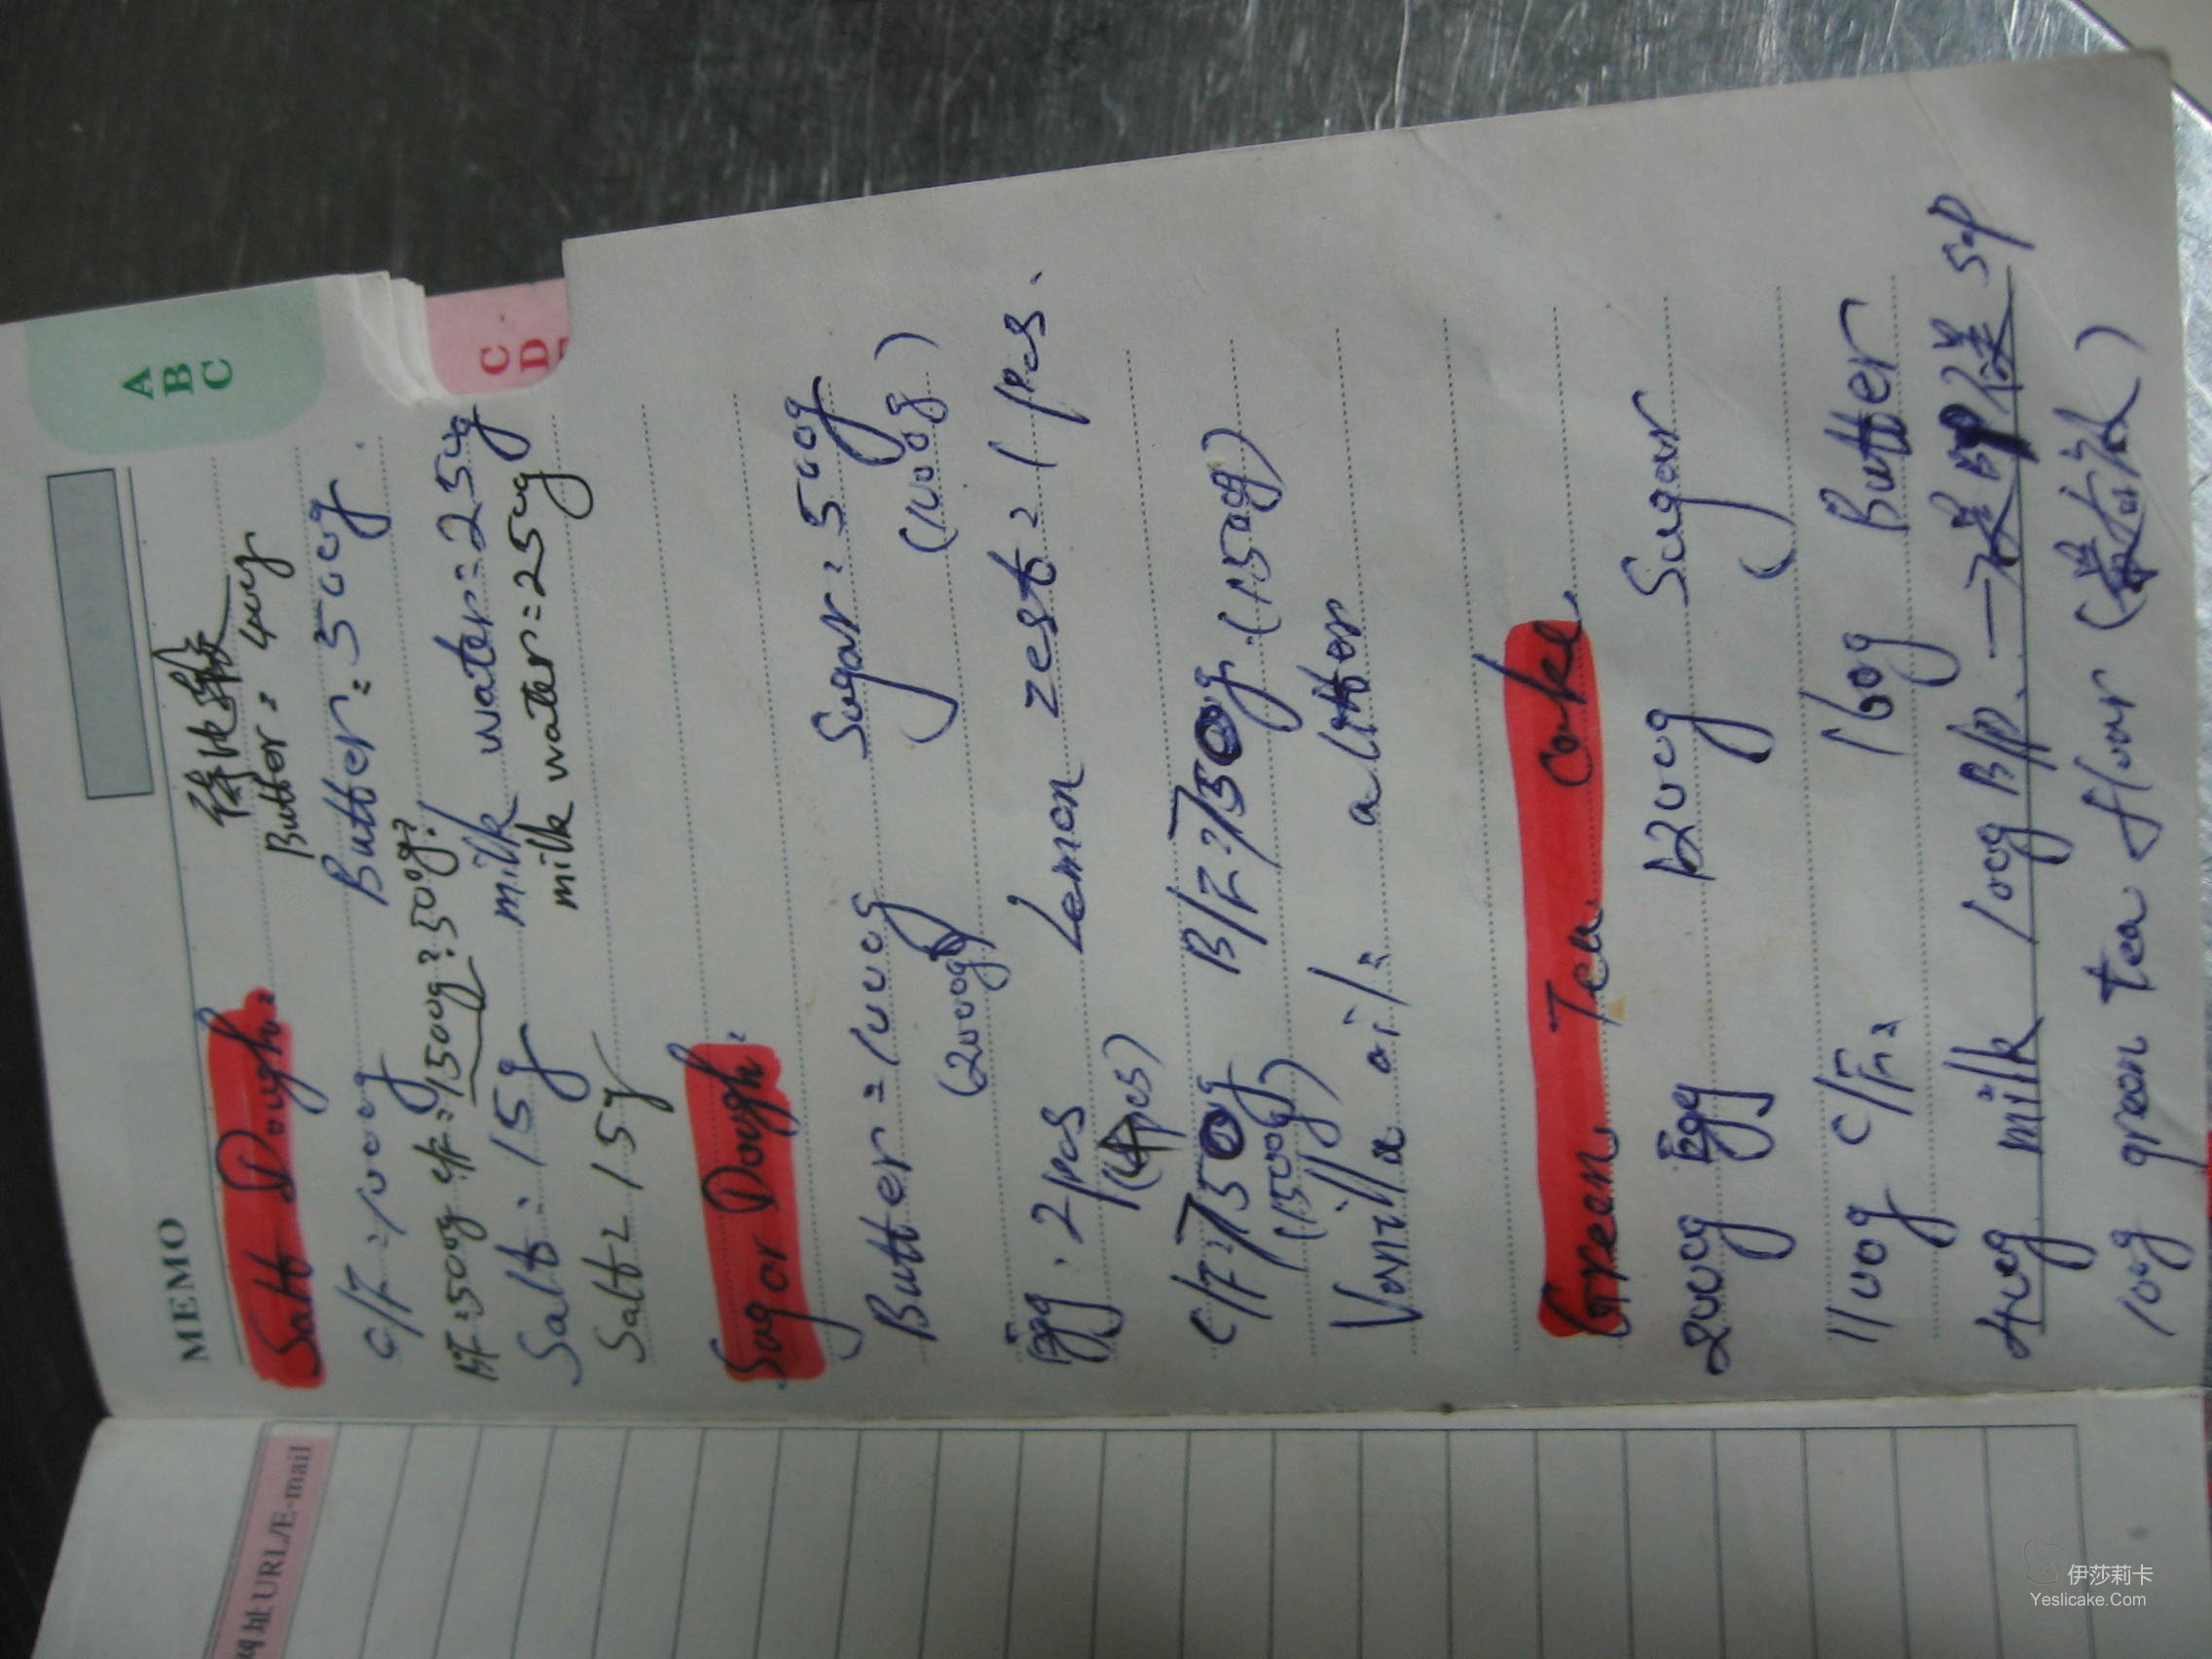 MEMO
Salt Dough:
Butter = 400g
C/F = 1000g Butter = 500g.
BF = 500g C/F = 1500g? 500g?
Salt = 15g milk water = 250g
Salt = 15g milk water = 250g
Sugar Dough:
Butter = 1000g Sugar = 500g
(2000g) (1000g)
Egg = 2pcs Lemon zest = 1pcs.
(4pcs)
C/F = 750g B/F = 750g (1500g)
(1500g)
Vanilla oil = a litter
Green Tea Cake
2000g Egg 1200g Sugar
1100g C/F = 160g Butter
400g milk 100g B/P. → 是BP 还是 SP
100g green tea flour
A
B
C
C
D
网址URL/E-mail
伊莎莉卡
Yeslicake.Com